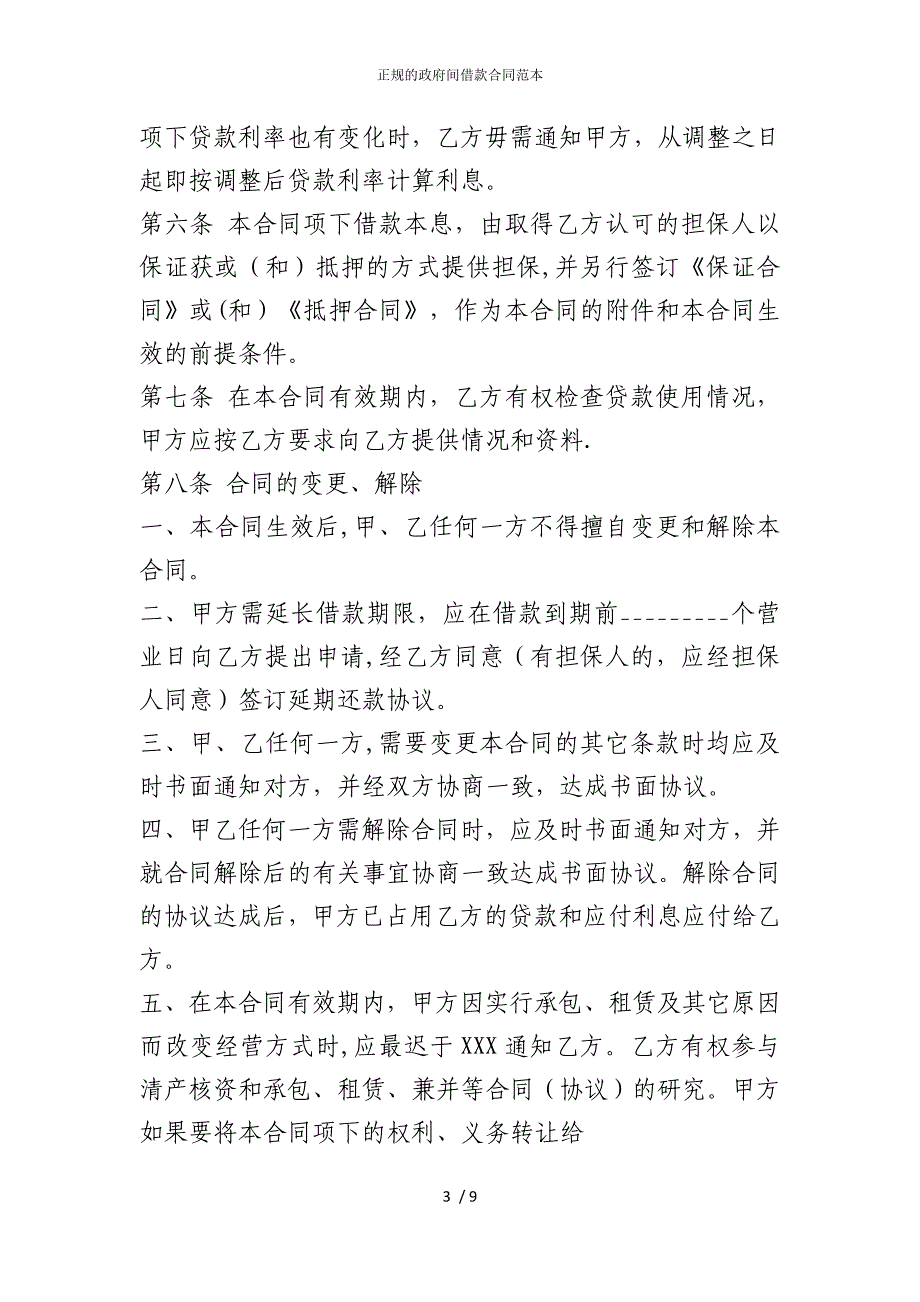 正规的政府间借款合同范本
项下贷款利率也有变化时，乙方毋需通知甲方，从调整之日
起即按调整后贷款利率计算利息。
第六条 本合同项下借款本息，由取得乙方认可的担保人以
保证获或（和）抵押的方式提供担保,并另行签订《保证合
同》或(和）《抵押合同》，作为本合同的附件和本合同生
效的前提条件。
第七条 在本合同有效期内，乙方有权检查贷款使用情况，
甲方应按乙方要求向乙方提供情况和资料.
第八条 合同的变更、解除
一、本合同生效后,甲、乙任何一方不得擅自变更和解除本
合同。
二、甲方需延长借款期限，应在借款到期前_________个营
业日向乙方提出申请,经乙方同意（有担保人的，应经担保
人同意）签订延期还款协议。
三、甲、乙任何一方,需要变更本合同的其它条款时均应及
时书面通知对方，并经双方协商一致，达成书面协议。
四、甲乙任何一方需解除合同时，应及时书面通知对方，并
就合同解除后的有关事宜协商一致达成书面协议。解除合同
的协议达成后，甲方已占用乙方的贷款和应付利息应付给乙
方。
五、在本合同有效期内，甲方因实行承包、租赁及其它原因
而改变经营方式时,应最迟于 XXX 通知乙方。乙方有权参与
清产核资和承包、租赁、兼并等合同（协议）的研究。甲方
如果要将本合同项下的权利、义务转让给
3 / 9